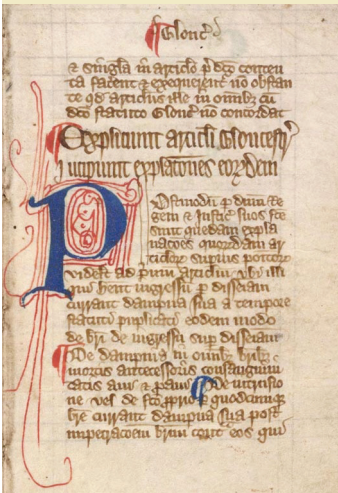 Gloucᵉ
& singla in articlo p̄dco conten
ta facent & exequerent no obstan
te qd articlus ille in omnibȝ cū
dco statuto Glouc̄ no concordat
Expliciunt articli Gloucestrᵉ
Incipiunt explacones eordem
Postmodū p dnm Re
gem & Justic suos fce
sunt quedam expla
nacoes quordam ar
ticlorᵉ supius positorᵉ
videlt ad pmū articlm ubi illi
qui hent ingressū p disseisinā
currant dampna sua a tempore
statuti publicati eodem modo
de bri de ingressu sup disseisinā
De dampnis in omnibȝ bribȝ
mortis antecessoris consanguini
tatis aui & paui De intrusio
ne vel de fco pprio p quodcumqȝ
bre currant dampna sua post
impetracoem brium cont eos qui